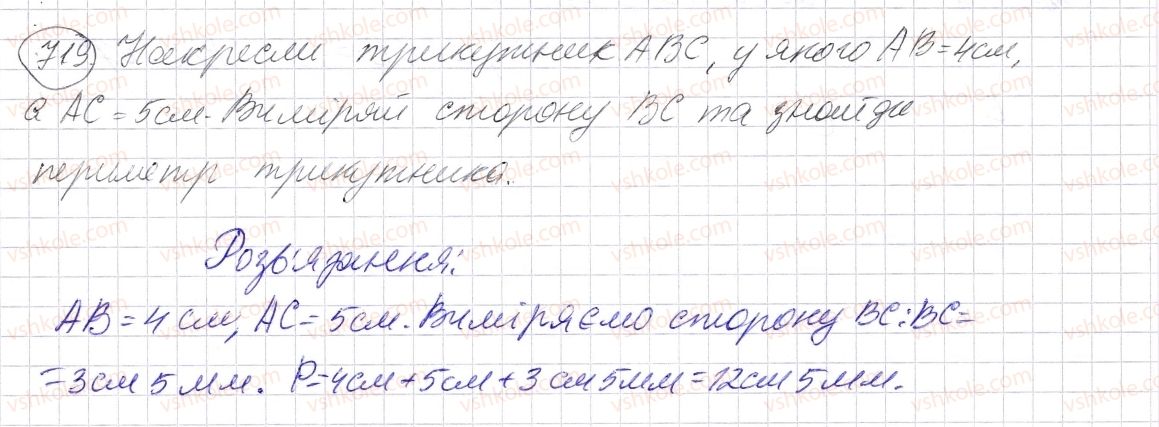 719 Накресли трикутник ABC, у якого AB=4см,
а AC=5см. Виміряй сторону BC та знайди
периметр трикутника.
Розв'язання:
AB=4см, AC=5см. Виміряємо сторону BC: BC=
=3см 5мм. P=4см+5см+3см 5мм=12см 5мм.